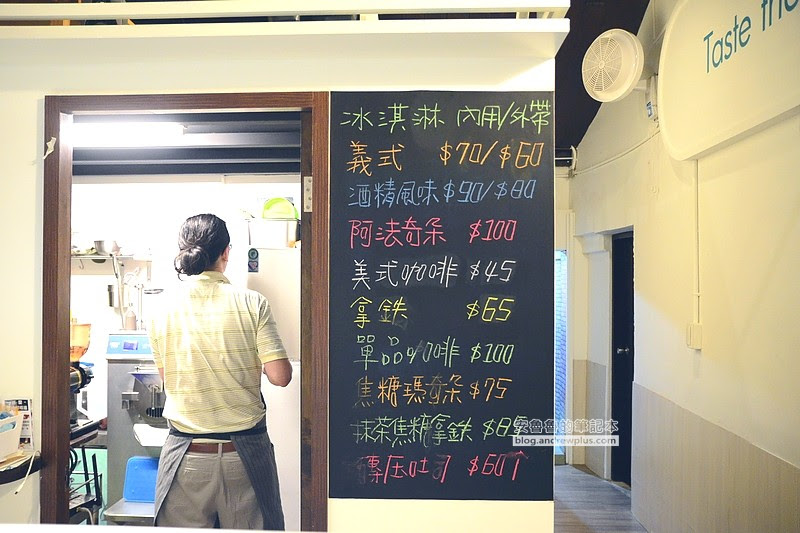 Taste frie
冰淇淋 內用/外帶
義式 $70/$60
酒精風味 $90/$80
阿法奇朵 $100
美式咖啡 $45
拿鉄 $65
單品咖啡 $100
焦糖瑪奇朵 $75
抹茶焦糖拿鉄 $85
安魯魯的筆記本
blog.andrewplus.com
$60↑